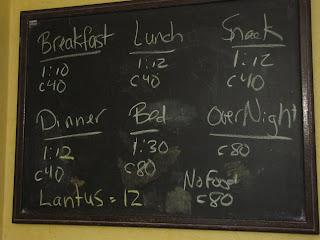 Breakfast Lunch Snack
1:10 1:12 1:12
c40 c40 c40
Dinner Bed OverNight
1:12 1:30 c80
c40 c80
Lantus = 12
No Food
c80